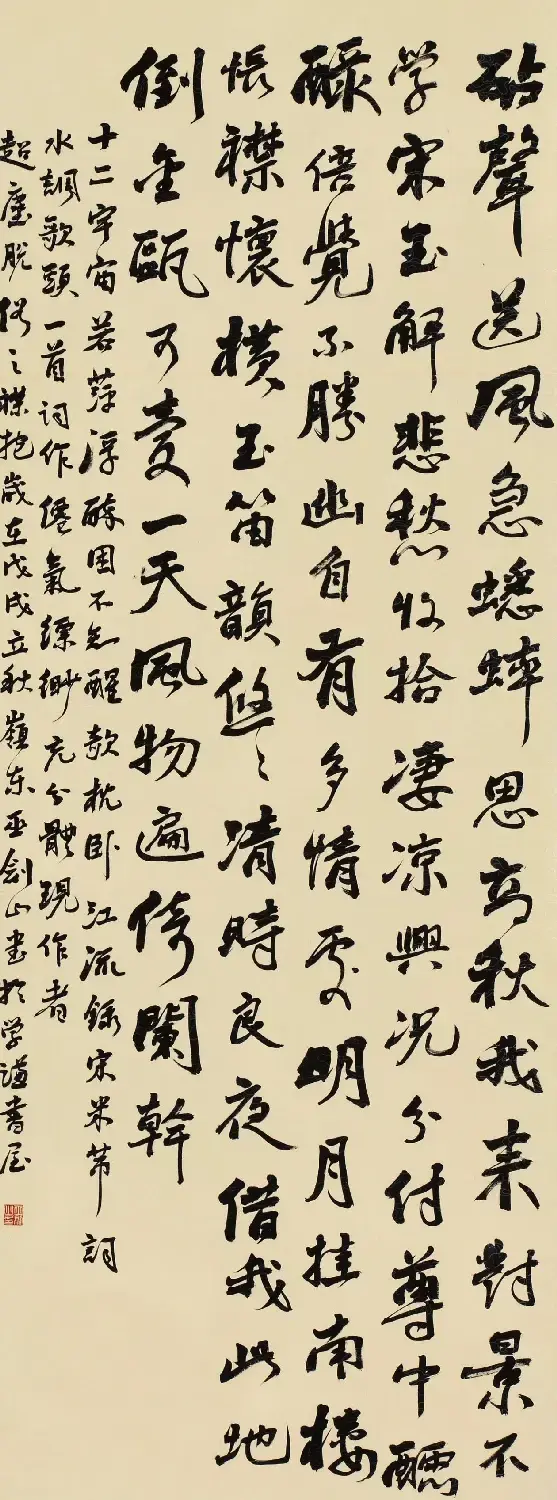 砧聲送風急蟋蟀思高秋我来對景不
学宋玉解悲愁收拾凄凉興况分付尊中醽
醁倍覺不勝幽自有多情处明月挂南樓
悵襟懷横玉笛韻悠々清時良夜借我此地
倒金甌可爱一天風物遍倚闌幹
十二宇宙若萍浮醉困不知醒欹枕卧江流録宋米芾詞
水調歌頭一首词作僊氣缥缈充分體現作者
超塵脱俗之襟抱歲在戊戌立秋嶺东巫劍山書於学谦書屋